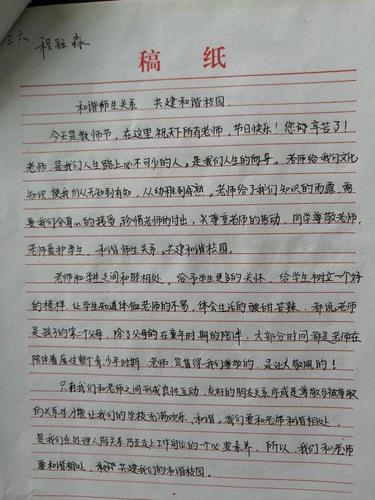 三六 程
稿 纸
和谐师生关系 共建和谐校园
今天是教师节，在这里祝天下所有老师，节日快乐！您们辛苦了！
老师，是我们人生路上必不可少的人，是我们人生的向导。老师给我们文化
知识，使我们从无知到有知，从幼稚到成熟。老师给了我们知识的雨露，需
要我们全身心的接受，珍惜老师的付出，尊重老师的劳动，同学尊敬老师，
老师爱护学生，和谐师生关系，共建和谐校园。
老师和学生之间和睦相处，给予学生更多的关怀，给学生树立一个好
的榜样，让学生知道体会老师的不易，体会生活的酸甜苦辣，都说老师
是孩子的第二个父母，除了父母的在童年时期的陪伴，大部分时间都是老师在
陪伴着度过整个青少年时期，老师，是值得我们尊敬的，是让人敬佩的！
只有我们和老师之间形成良性互动，友好的朋友关系亦或是尊敬与被尊敬
的关系才能让我们的学校充满欢乐、和谐。我们要和老师和谐相处，
是我们在处理人际关系乃至走上工作岗位的一个必要素养，所以，我们和老师
要和谐相处，共建我们的和谐校园。